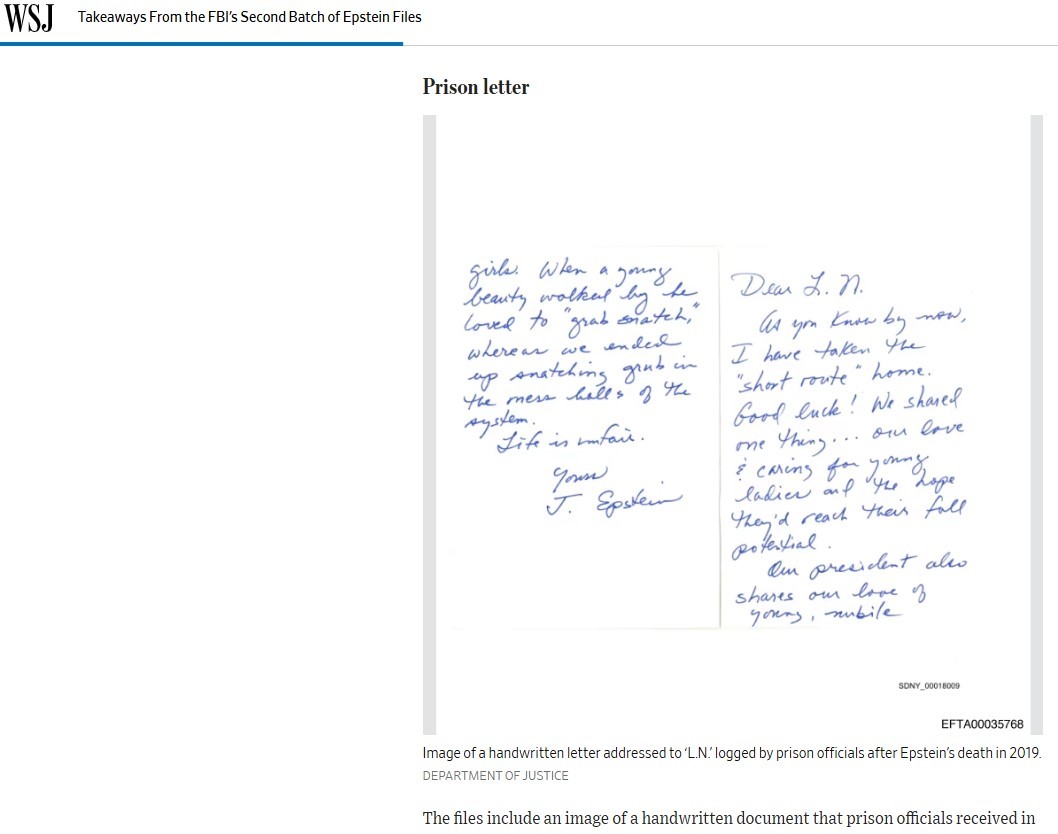 WSJ
Takeaways From the FBI's Second Batch of Epstein Files
Prison letter
Dear L. N.
As you know by now,
I have taken the
"short route" home.
Good luck! We shared
one thing... our love
& caring for young
ladies and the hope
they'd reach their full
potential.
Our president also
shares our love of
young, nubile
girls. When a young
beauty walked by he
loved to "grab snatch,"
whereas we ended
up snatching grub in
the mess halls of the
system.
Life is unfair.
Yours
J. Epstein
SDNY_00018009
EFTA00035768
Image of a handwritten letter addressed to 'L.N.' logged by prison officials after Epstein's death in 2019.
DEPARTMENT OF JUSTICE
The files include an image of a handwritten document that prison officials received in